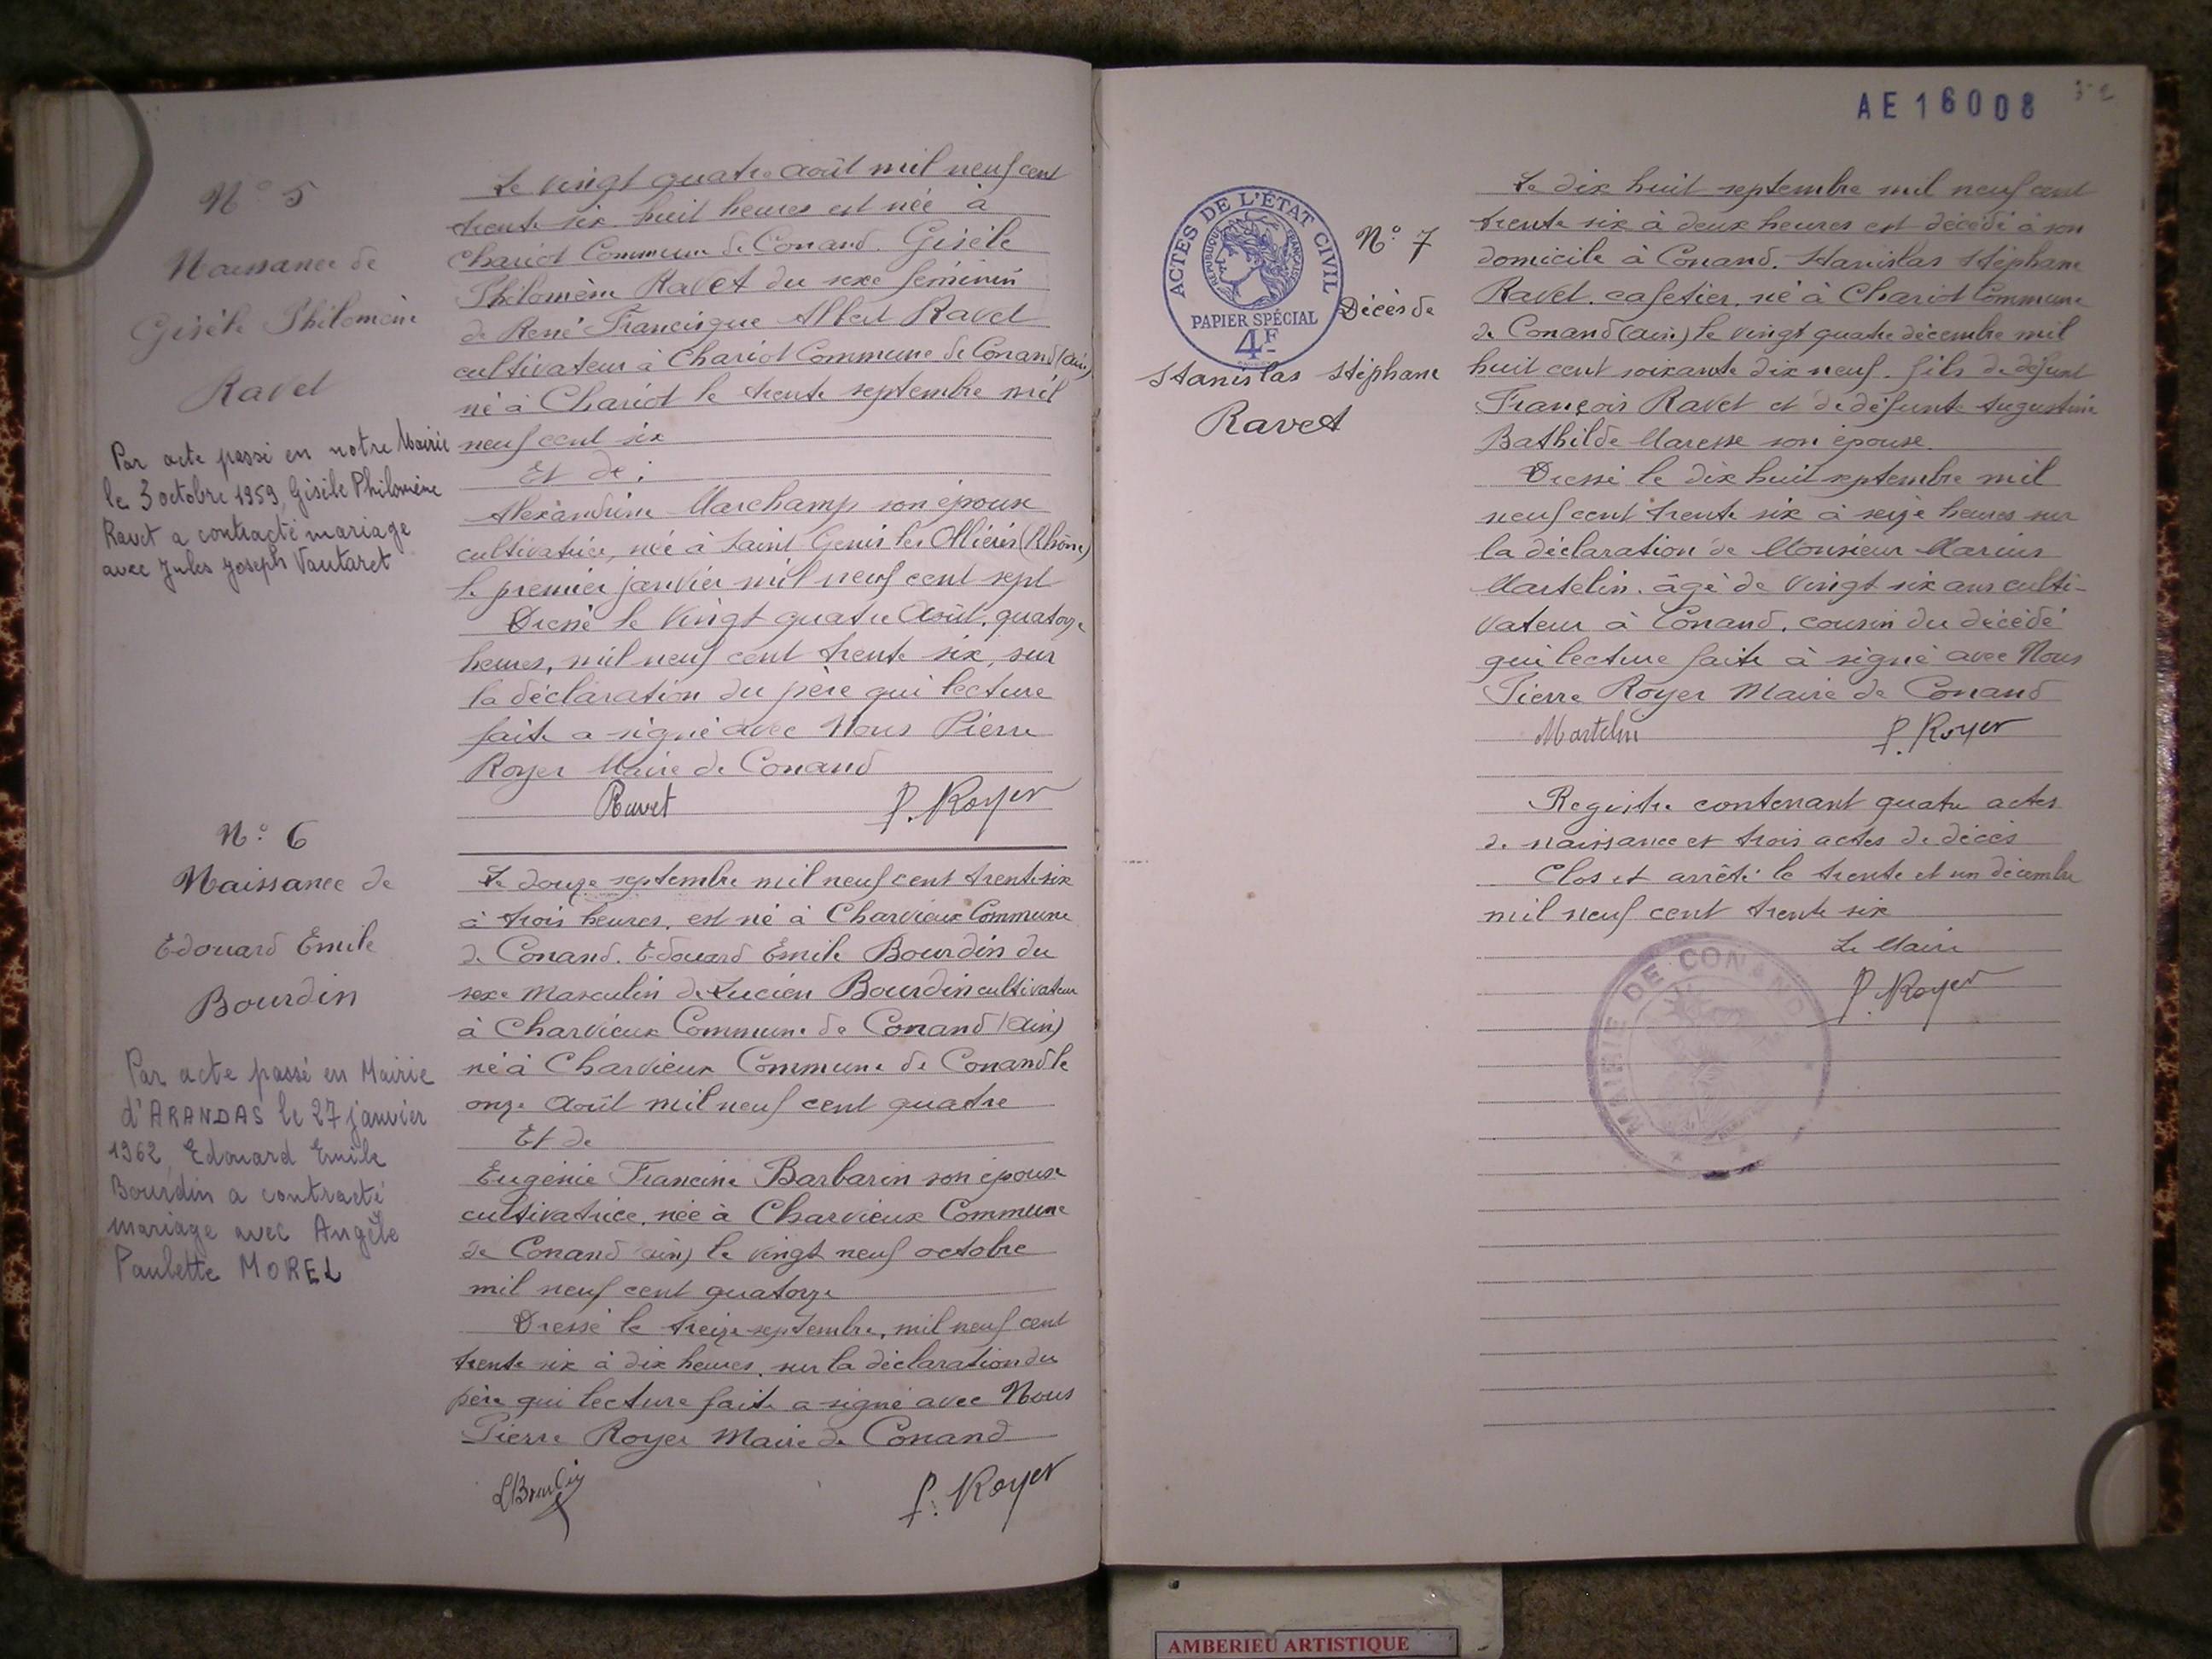 N° 5
Naissance de
Gisèle Philomène
Ravet
Par acte passé en notre Mairie
le 3 octobre 1959, Gisèle Philomène
Ravet a contracté mariage
avec Jules Joseph Vautaret
Le vingt quatre août mil neuf cent
trente six huit heures est née à
Chariot Commune de Conand. Gisèle
Philomène Ravet du sexe féminin
de René Francisque Albert Ravet
cultivateur à Chariot Commune de Conand (Ain)
né à Chariot le trente septembre mil
neuf cent six
Et de :
Alexandrine Marchamp son épouse
cultivatrice, née à Saint Genis les Ollières (Rhône)
le premier janvier mil neuf cent sept
Dressé le vingt quatre Août, quatorze
heures, mil neuf cent trente six, sur
la déclaration du père qui lecture
faite a signé avec Nous Pierre
Royer Maire de Conand
Ravet P. Royer
N° 6
Naissance de
Edouard Emile
Bourdin
Par acte passé en Mairie
d'ARANDAS le 27 janvier
1962, Edouard Emile
Bourdin a contracté
mariage avec Angèle
Paulette MOREL
Le douze septembre mil neuf cent trente six
à trois heures, est né à Charvieux Commune
de Conand. Edouard Emile Bourdin du
sexe Masculin de Lucien Bourdin cultivateur
à Charvieux Commune de Conand (Ain)
né à Charvieux Commune de Conand le
onze Août mil neuf cent quatre
Et de
Eugénie Francine Barbarin son épouse
cultivatrice, née à Charvieux Commune
de Conand (Ain) le vingt neuf octobre
mil neuf cent quatorze
Dressé le treize septembre, mil neuf cent
trente six à dix heures, sur la déclaration du
père qui lecture faite a signé avec Nous
Pierre Royer Maire de Conand
LBourdin P. Royer
AE16008
ACTES DE L'ÉTAT CIVIL
RÉPUBLIQUE FRANÇAISE
PAPIER SPÉCIAL
4F
N° 7
Décès de
Stanislas Stéphane
Ravet
Le dix huit septembre mil neuf cent
trente six à deux heures est décédé à son
domicile à Conand. Stanislas Stéphane
Ravet. cafetier, né à Chariot Commune
de Conand (Ain) le vingt quatre décembre mil
huit cent soixante dix neuf. fils de défunt
François Ravet et de défunte Augustine
Bathilde Maresse son épouse.
Dressé le dix huit septembre mil
neuf cent trente six à seize heures sur
la déclaration de Monsieur Marius
Martelin. âgé de vingt six ans culti-
vateur à Conand, cousin du décédé
qui lecture faite à signé avec Nous
Pierre Royer Maire de Conand
Martelin P. Royer
Registre contenant quatre actes
de naissance et trois actes de décès
Clos et arrêté le trente et un décembre
mil neuf cent trente six
Le Maire
P. Royer
MAIRIE DE CONAND
AMBERIEU ARTISTIQUE